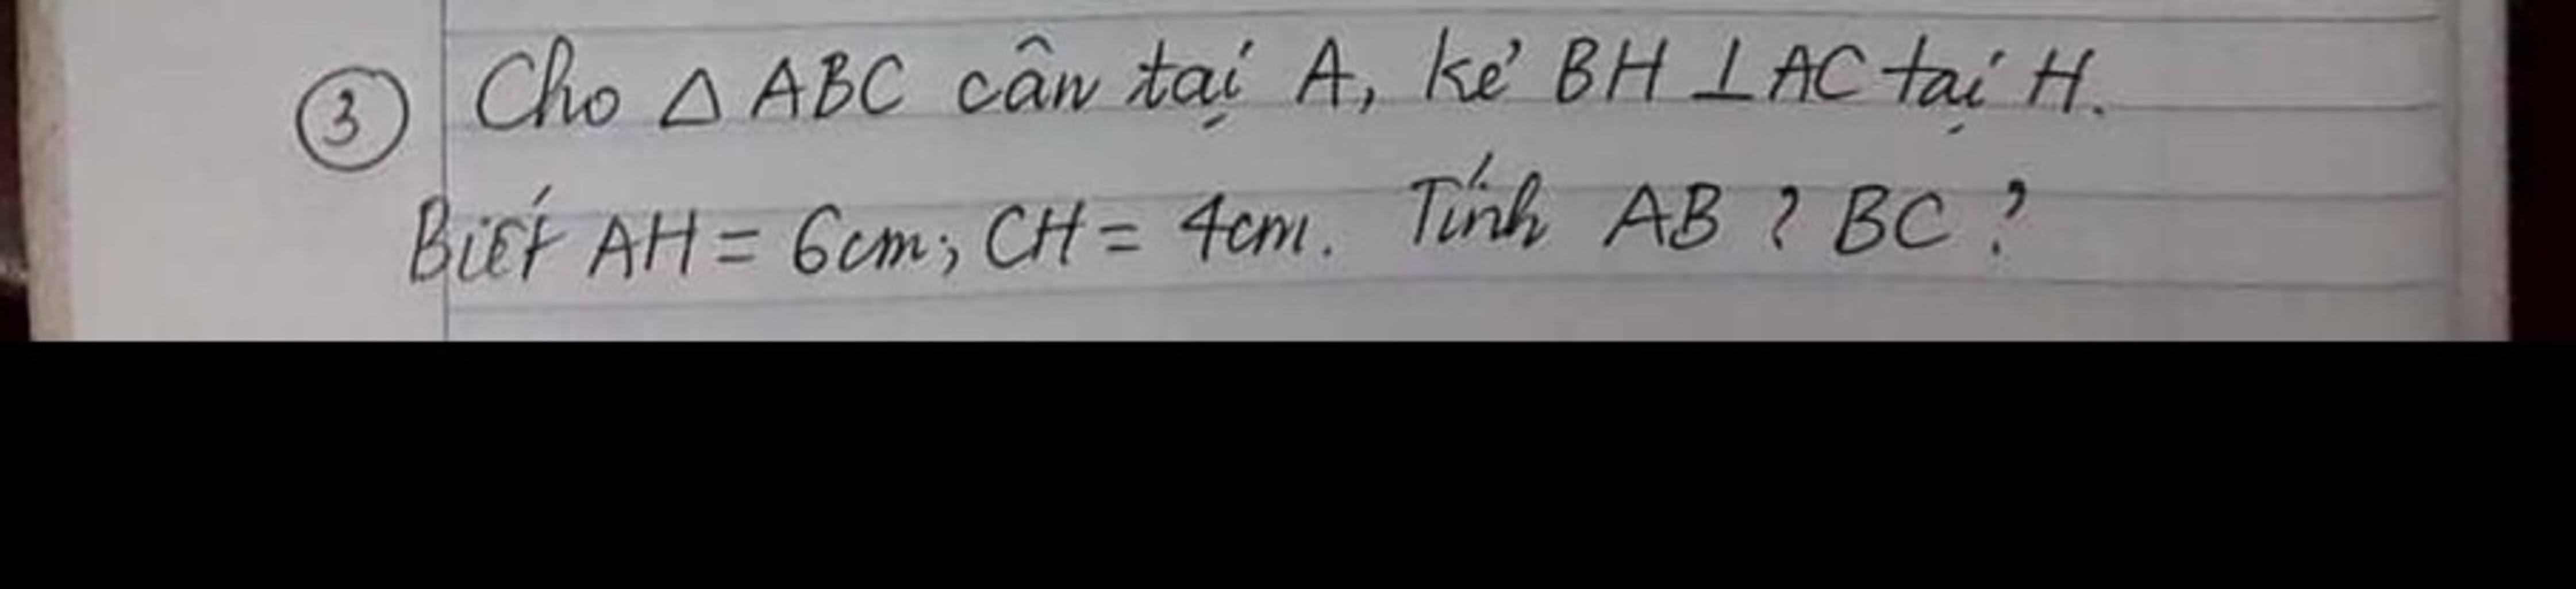 ③ Cho △ ABC cân tại A, kẻ BH ⊥ AC tại H.
Biết AH = 6cm; CH = 4cm. Tính AB ? BC ?